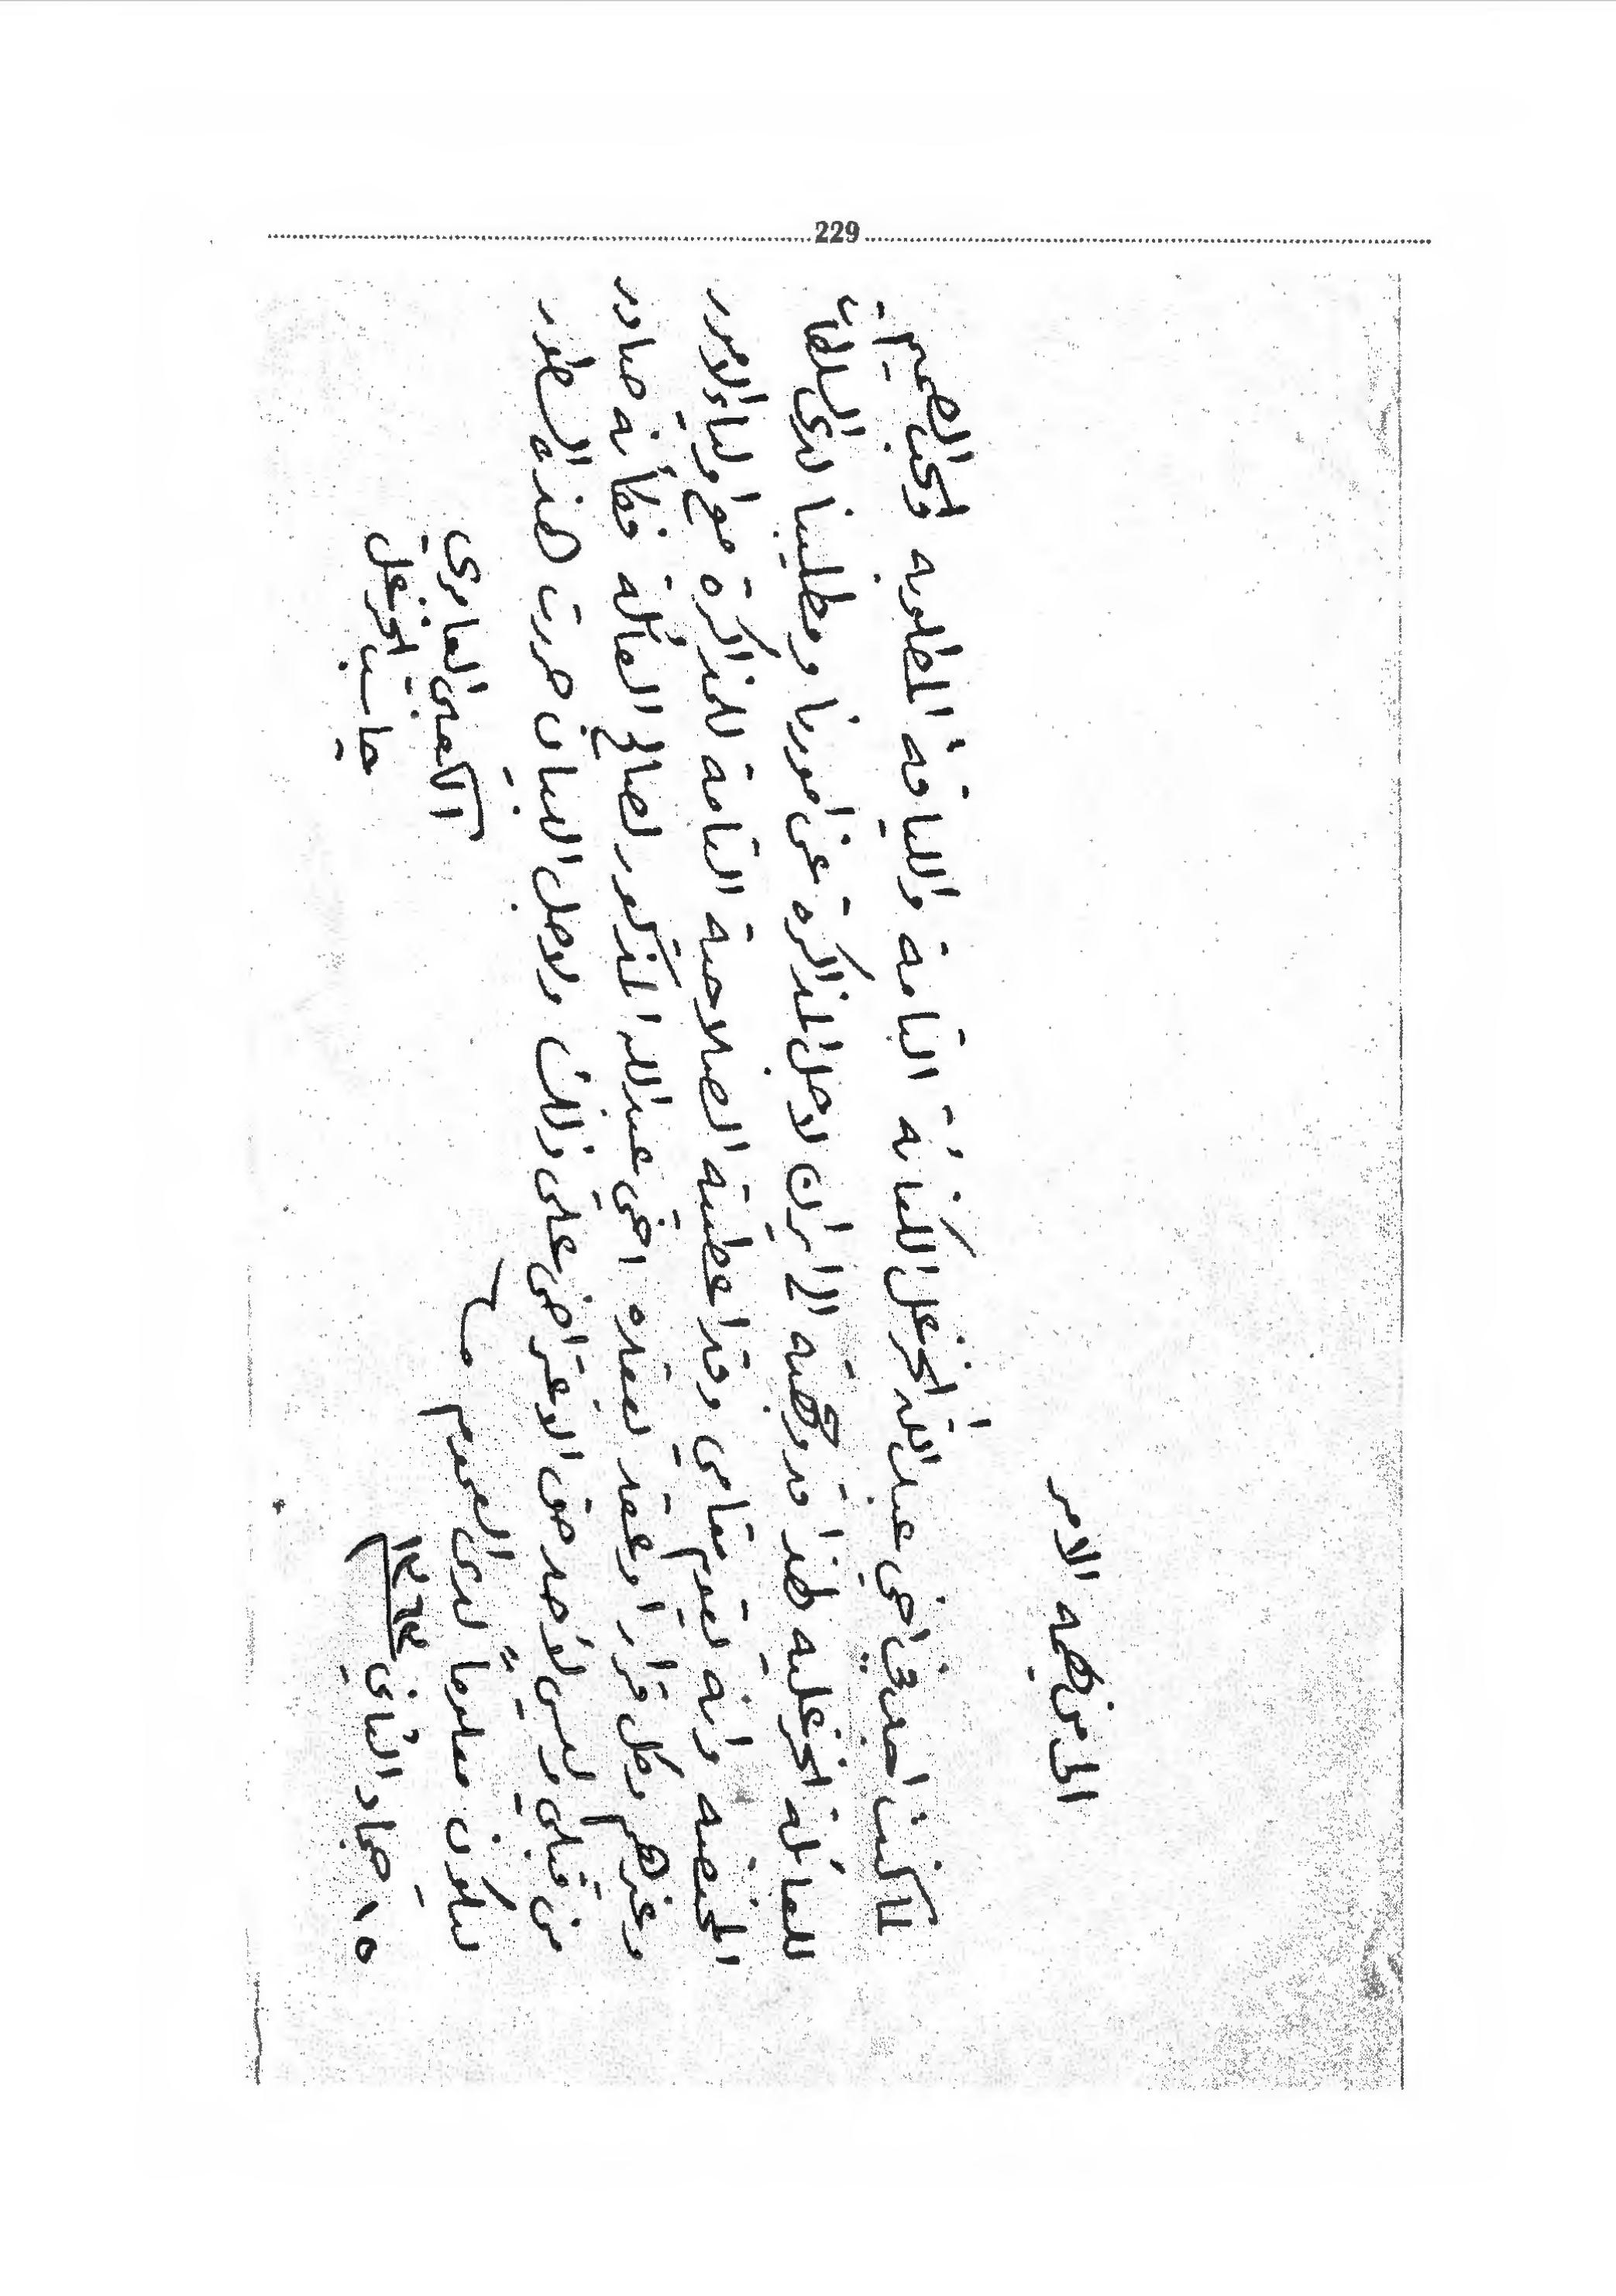 229
الى من يهمه الامر
لما كنت اجد في اخي عبد الله الخزعل الكفائة التامة واللياقة المطلوبه والحب الصميم
للعائلة الخزعليه لهذا قد وجهته الى ايران لاجل المذاكرة عن امورنا ومطاليبنا لدى السلطات
المختصه وانه ليقوم مقامي وقد اعطيته الصلاحية التامة للمذاكرة مع اولياء الامور
وغيرهم وكل قرار او عقد يعقده اخي عبد الله المذكور لصالح العائلة فكأنه صادر
من قبلي وليس لأحد حق الاعتراض على ذلك ولاجل البيان حررت هذه السطور
ليكون معلوماً لدى العموم
الكعبي العامري
١٥ جماد الثاني ١٣٦٣
جاسب الخزعل